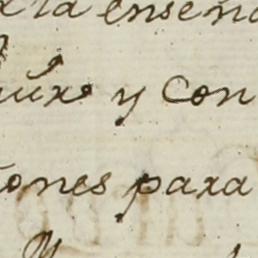 la enseña
y con
ones para